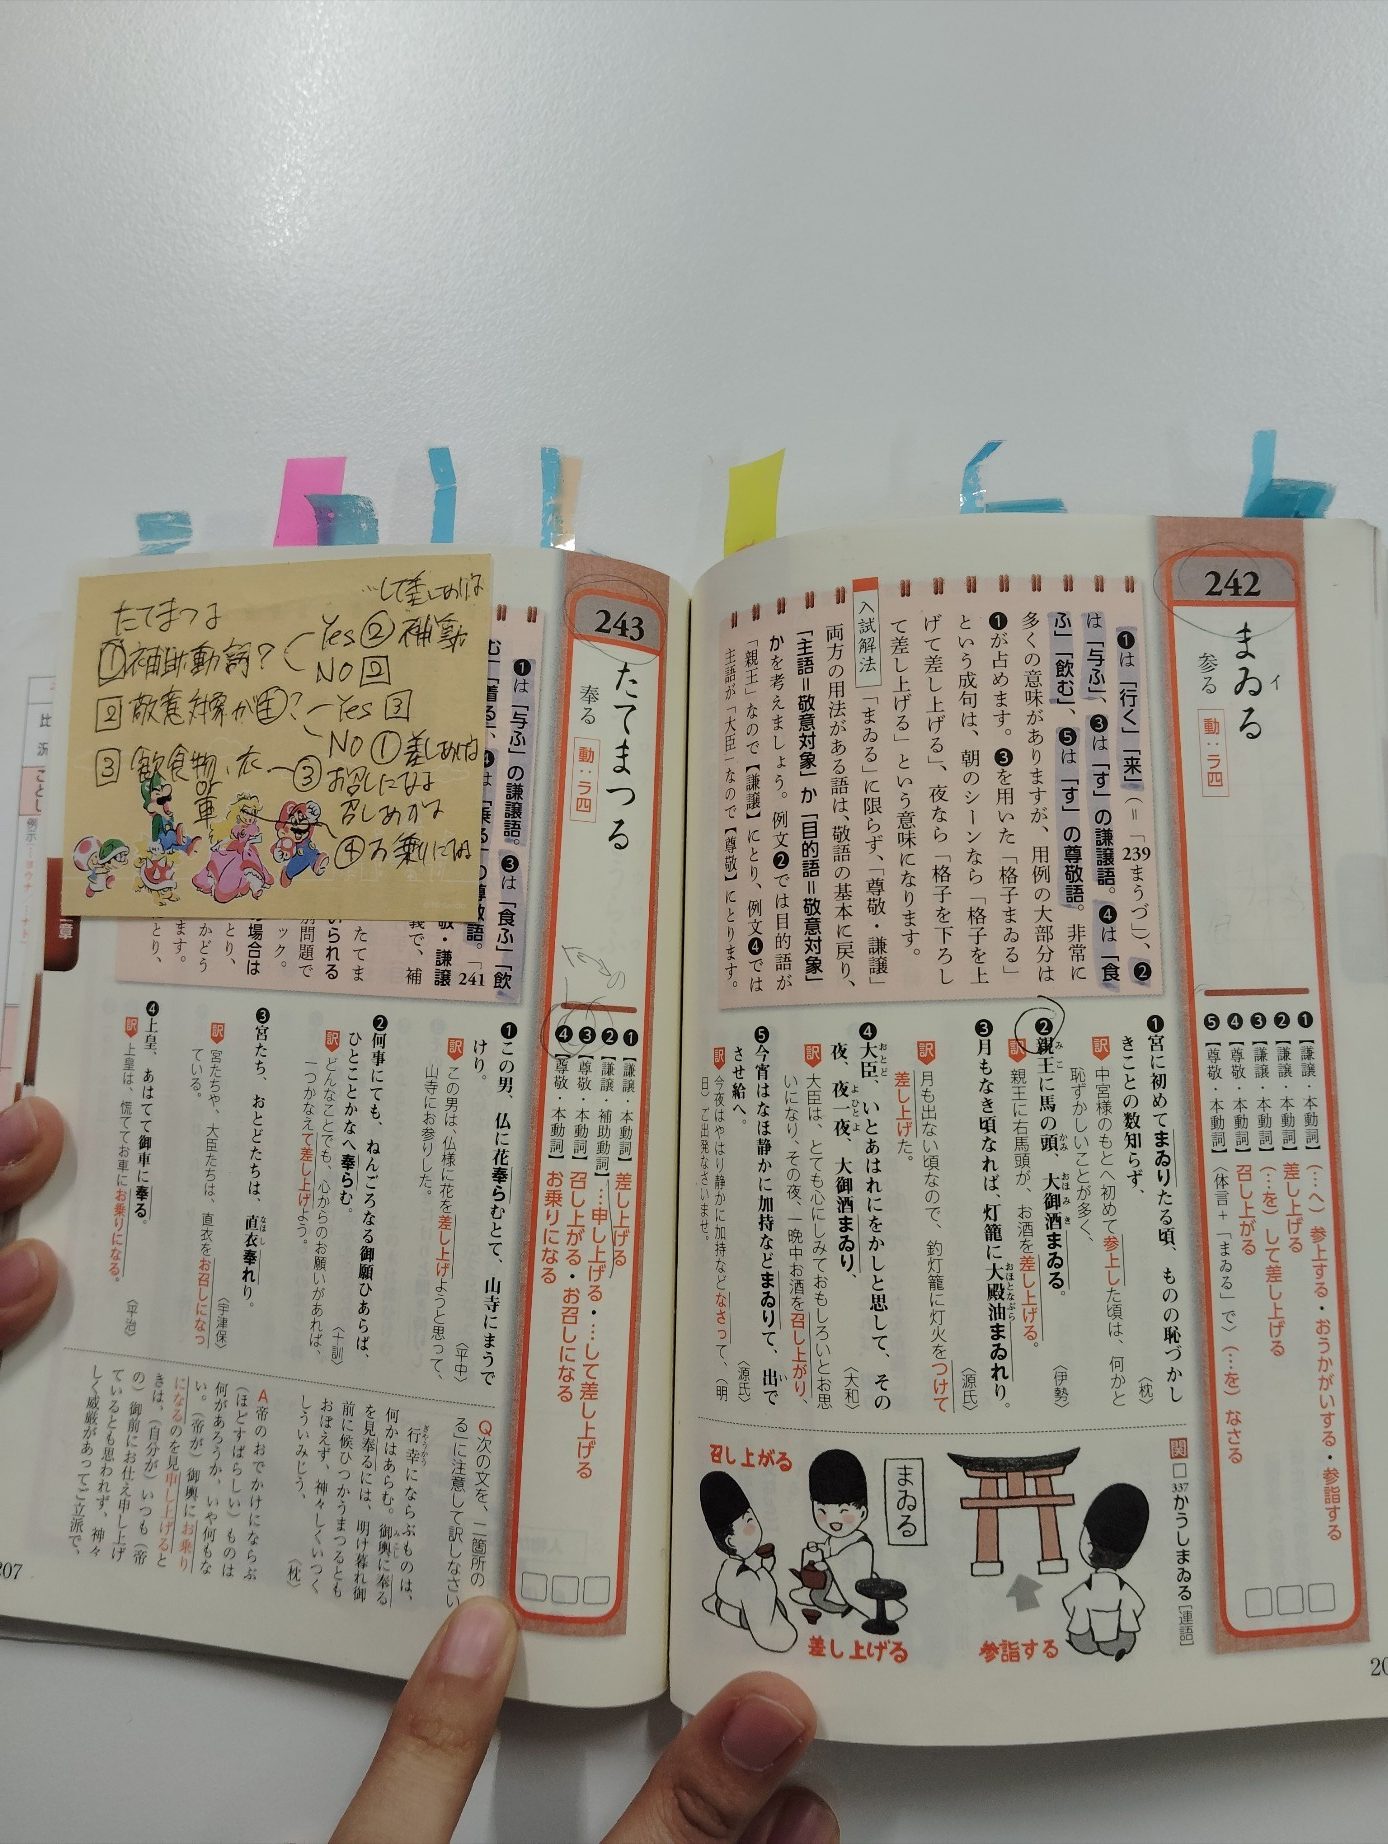 242
まゐる
イ
参る
動：ラ四
❶【謙譲・本動詞】（…へ）参上する・おうかがいする・参詣する
❷【謙譲・本動詞】差し上げる
❸【謙譲・本動詞】（…を）して差し上げる
❹【尊敬・本動詞】召し上がる
❺【尊敬・本動詞】〈体言＋「まゐる」で〉（…を）なさる
❶は「行く」「来」（＝「239まうづ」）、❷
は「与ふ」、❸は「す」の謙譲語。❹は「食
ふ」「飲む」、❺は「す」の尊敬語。非常に
多くの意味がありますが、用例の大部分は
❶が占めます。❸を用いた「格子まゐる」
という成句は、朝のシーンなら「格子を上
げて差し上げる」、夜なら「格子を下ろし
て差し上げる」という意味になります。
入試解法 「まゐる」に限らず、「尊敬・謙譲」
両方の用法がある語は、敬語の基本に戻り、
「主語＝敬意対象」か「目的語＝敬意対象」
かを考えましょう。例文❷では目的語が
「親王」なので【謙譲】にとり、例文❹では
主語が「大臣」なので【尊敬】にとります。
❶宮に初めてまゐりたる頃、ものの恥づかし
きことの数知らず、〈枕〉
訳 中宮様のもとへ初めて参上した頃は、何かと
恥ずかしいことが多く、
❷親王に馬の頭、大御酒まゐる。〈伊勢〉
みこ かみ おほみき
訳 親王に右馬頭が、お酒を差し上げる。
❸月もなき頃なれば、灯籠に大殿油まゐれり。〈源氏〉
おほとなぶら
訳 月も出ない頃なので、釣灯籠に灯火をつけて
差し上げた。
❹大臣、いとあはれにをかしと思して、その
おとど
夜、夜一夜、大御酒まゐり、〈大和〉
よひとよ
訳 大臣は、とても心にしみておもしろいとお思
いになり、その夜、一晩中お酒を召し上がり、
❺今宵はなほ静かに加持などまゐりて、出で
い
させ給へ。〈源氏〉
訳 今夜はやはり静かに加持などなさって、（明
日）ご出発なさいませ。
関 □337かうしまゐる［連語］
まゐる
召し上がる
差し上げる
参詣する
20
243
たてまつる
奉る
動：ラ四
❶【謙譲・本動詞】差し上げる
❷【謙譲・補助動詞】…申し上げる・…して差し上げる
❸【尊敬・本動詞】召し上がる・お召しになる
❹【尊敬・本動詞】お乗りになる
❶は「与ふ」の謙譲語。❸は「食ふ」「飲
む」「着る」、❹は「乗る」の尊敬語。「241
たてまつる
①補助動詞？
Yes ② 補動
…して差しあげる
NO 2
2 敬意対象が主？
Yes 3
NO ① 差しあげる
3 飲食物、衣
③お召しになる
召しあがる
or
車
④お乗りになる
❶この男、仏に花奉らむとて、山寺にまうで
けり。〈平中〉
訳 この男は、仏様に花を差し上げようと思って、
山寺にお参りした。
❷何事にても、ねんごろなる御願ひあらば、
ひとことかなへ奉らむ。〈十訓〉
訳 どんなことでも、心からのお願いがあれば、
一つかなえて差し上げよう。
❸宮たち、おとどたちは、直衣奉れり。〈宇津保〉
なほし
訳 宮たちや、大臣たちは、直衣をお召しになっ
ている。
❹上皇、あはてて御車に奉る。〈平治〉
訳 上皇は、慌ててお車にお乗りになる。
Q次の文を、二箇所の「
る」に注意して訳しなさい
行幸にならぶものは、
ぎやうかう
何かはあらむ。御輿に奉る
みこし
を見奉るには、明け暮れ御
前に候ひつかうまつるとも
おぼえず、神々しくいつく
しういみじう、〈枕〉
A帝のおでかけにならぶ
（ほどすばらしい）ものは
何があろうか、いや何もな
い。（帝が）御輿にお乗り
になるのを見申し上げると
きは、（自分が）いつも（帝
の）御前にお仕え申し上げ
ているとも思われず、神々
しく威厳があってご立派で、
207